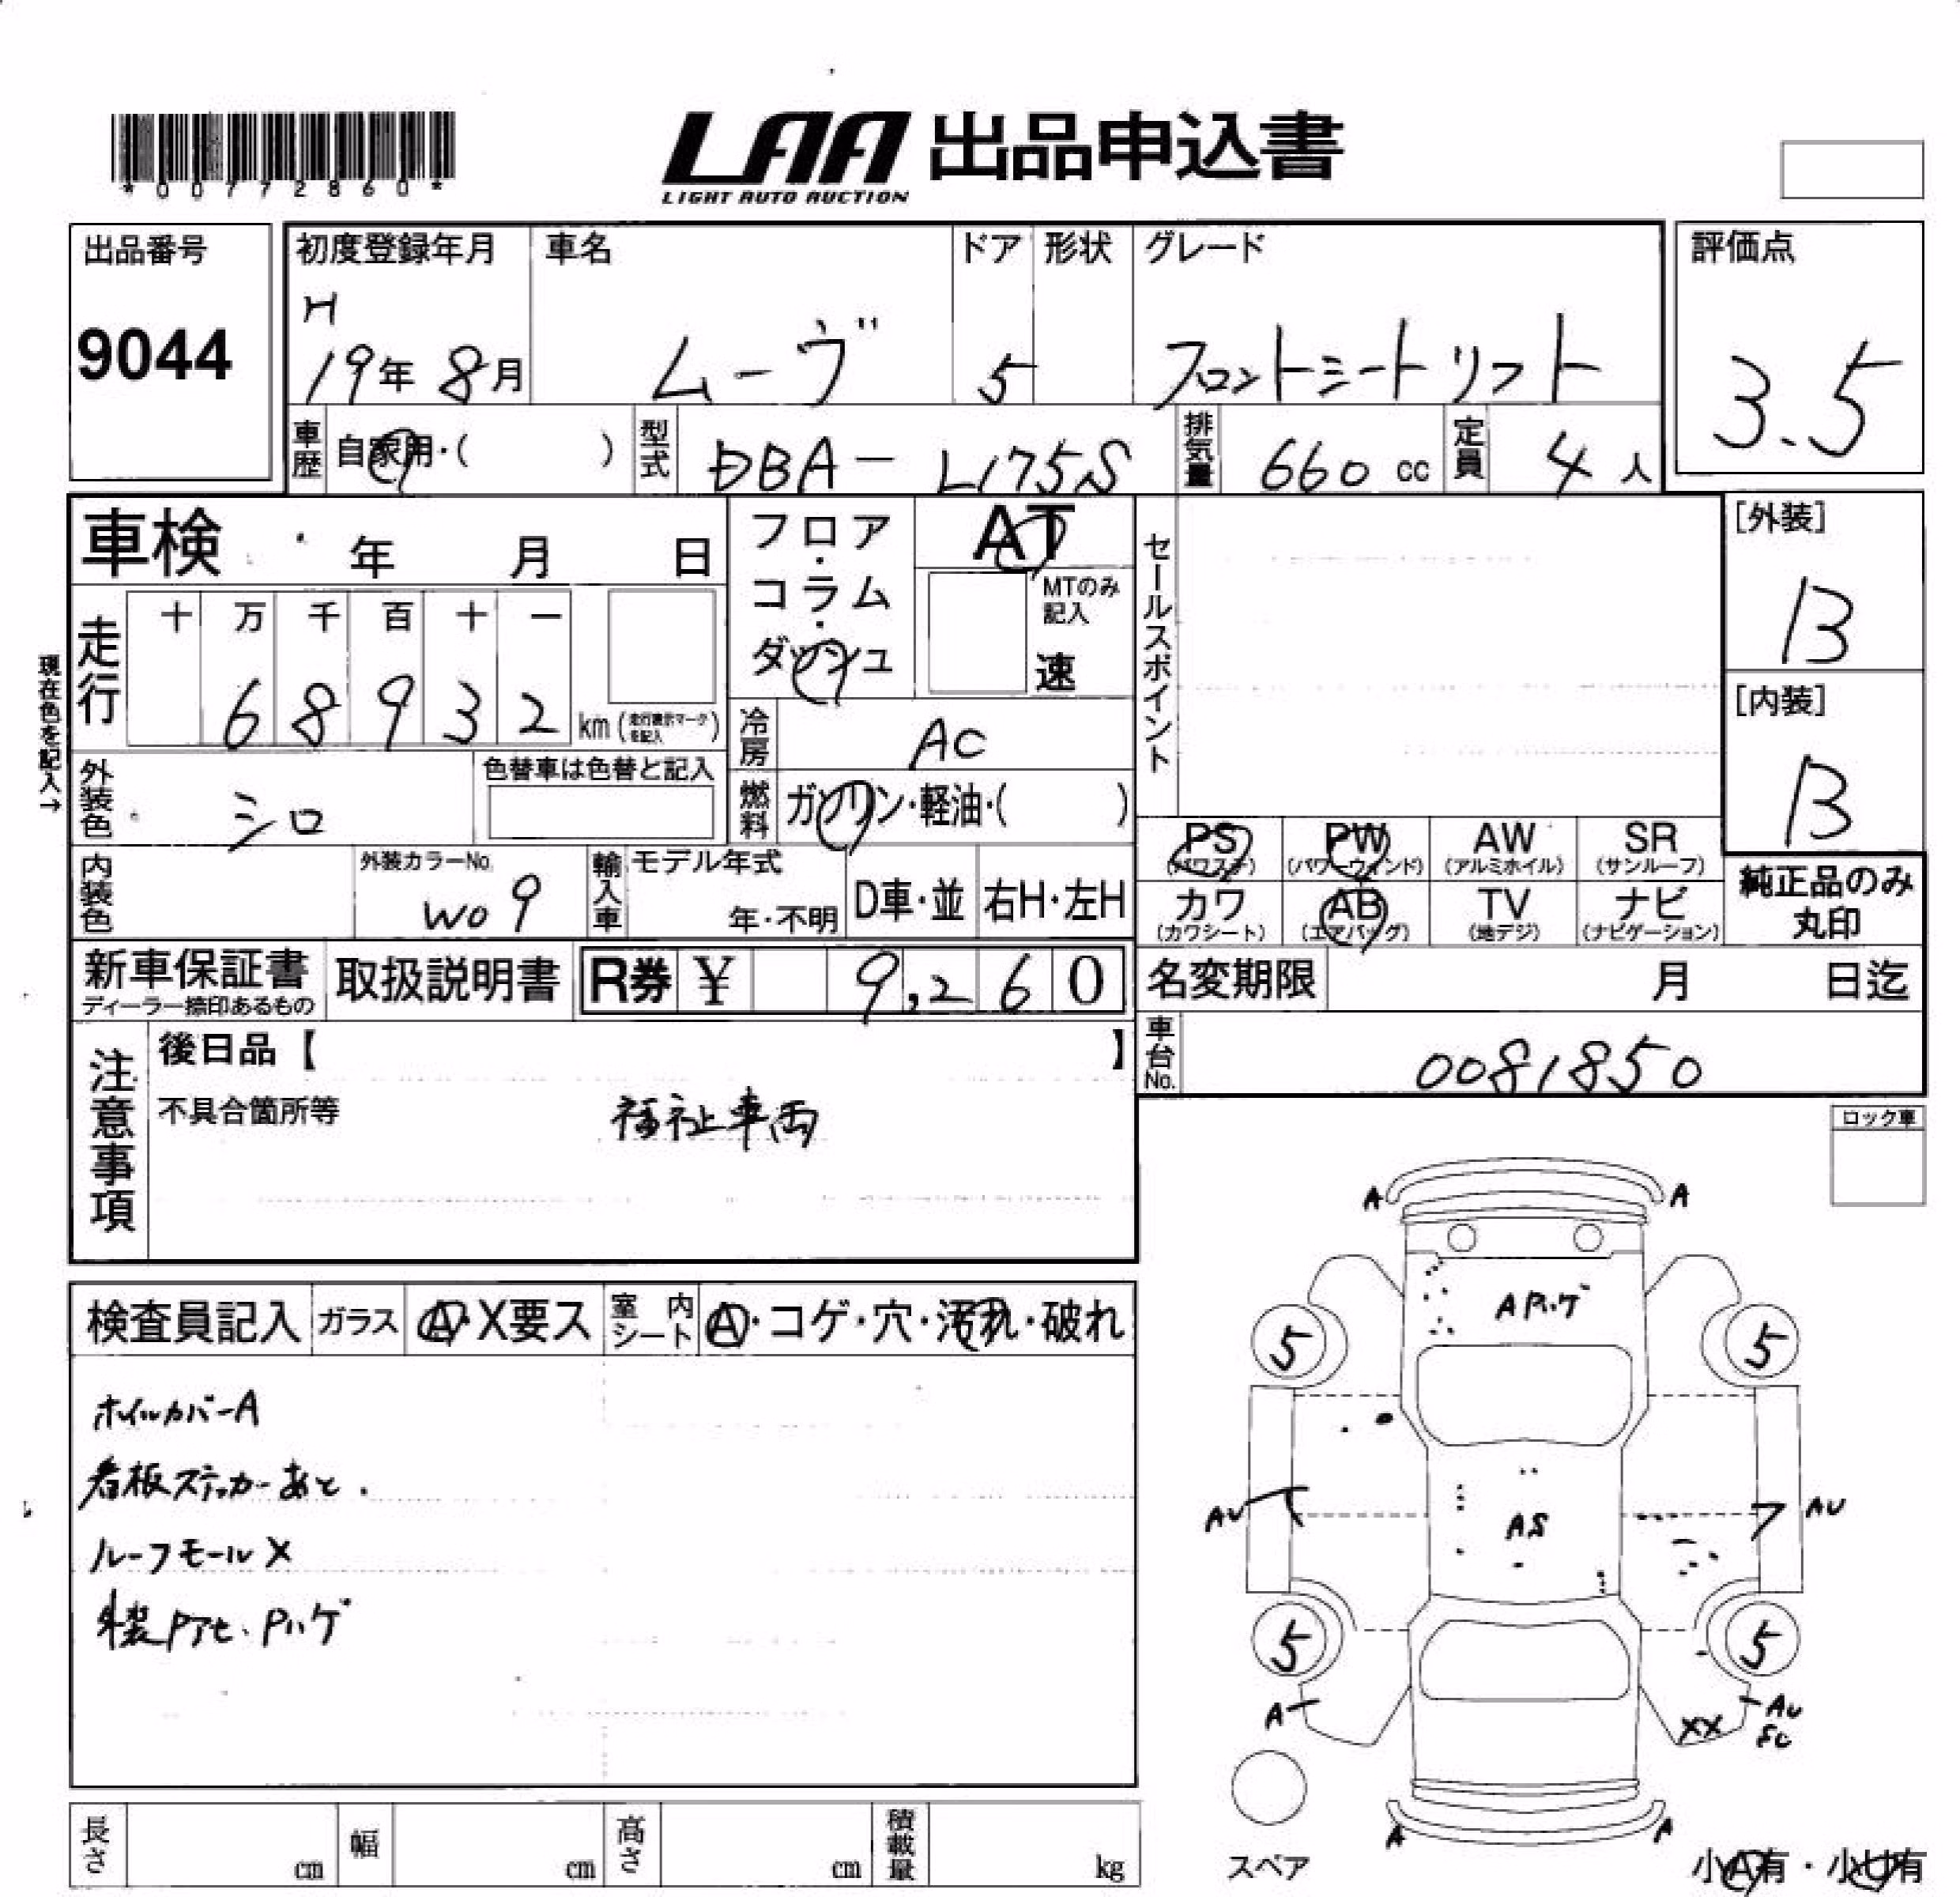 *00772860*
LAA 出品申込書
LIGHT AUTO AUCTION
出品番号
9044
初度登録年月
H
19年 8月
車名
ムーヴ
ドア
5
形状
グレード
フロントシートリフト
評価点
3.5
車歴
自家用・( )
型式
DBA- L175S
排気量
660 cc
定員
4 人
車検 年 月 日
フロア・コラム・ダッシュ
AT
MTのみ記入
速
セールスポイント
[外装]
B
[内装]
B
現在色を記入→
走行
十 万 千 百 十 一
6 8 9 3 2 km (走行表示マークを記入)
冷房
AC
外装色
シロ
色替車は色替と記入
燃料
ガソリン・軽油・( )
PS (パワステ) PW (パワーウィンド) AW (アルミホイル) SR (サンルーフ)
カワ (カワシート) AB (エアバッグ) TV (地デジ) ナビ (ナビゲーション)
純正品のみ丸印
内装色
外装カラーNo.
W09
輸入車
モデル年式
年・不明
D車・並
右H・左H
新車保証書
ディーラー捺印あるもの
取扱説明書
R券 ¥ 9,260
名変期限 月 日迄
車台No.
0081850
注意事項
後日品【 】
不具合箇所等
福祉車両
ロック車
検査員記入
ガラス
A・X要ス
室内シート
A・コゲ・穴・汚れ・破れ
ホイルカバーA
看板ステッカーあと.
ルーフモールX
外装Pアセ、Pハゲ
A A
A Pハゲ
5 5
AU AS AU
5 5
A XX AU
A A
スペア
小A有・小U有
長さ cm
幅 cm
高さ cm
積載量 kg